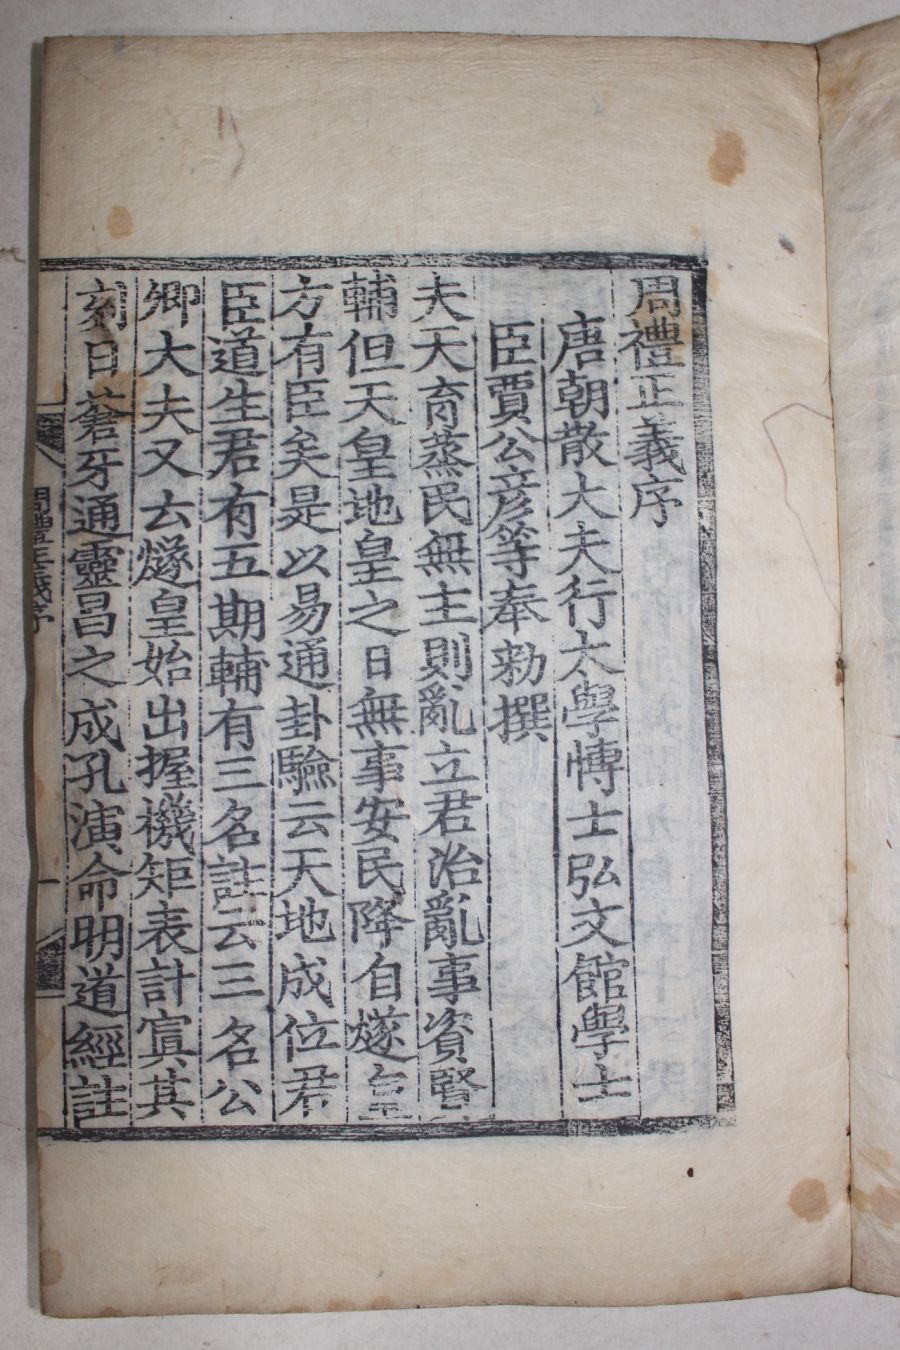 周禮正義序
唐朝散大夫行太學愽士弘文館學士
臣賈公彦等奉勑撰
夫天育蒸民無主則亂立君治亂事資賢
輔但天皇地皇之日無事安民降自燧皇
方有臣矣是以易通卦驗云天地成位君
臣道生君有五期輔有三名註云三名公
卿大夫又云燧皇始出握機矩表計寘其
刻曰蒼牙通靈昌之成孔演命明道經註
周禮正義序
一